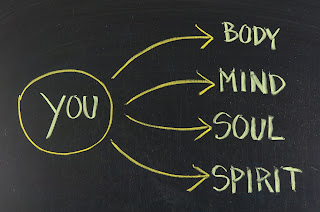 YOU
BODY
MIND
SOUL
SPIRIT